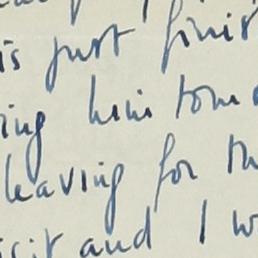 is just finis
ing him tomo
leaving for th
isit and I w